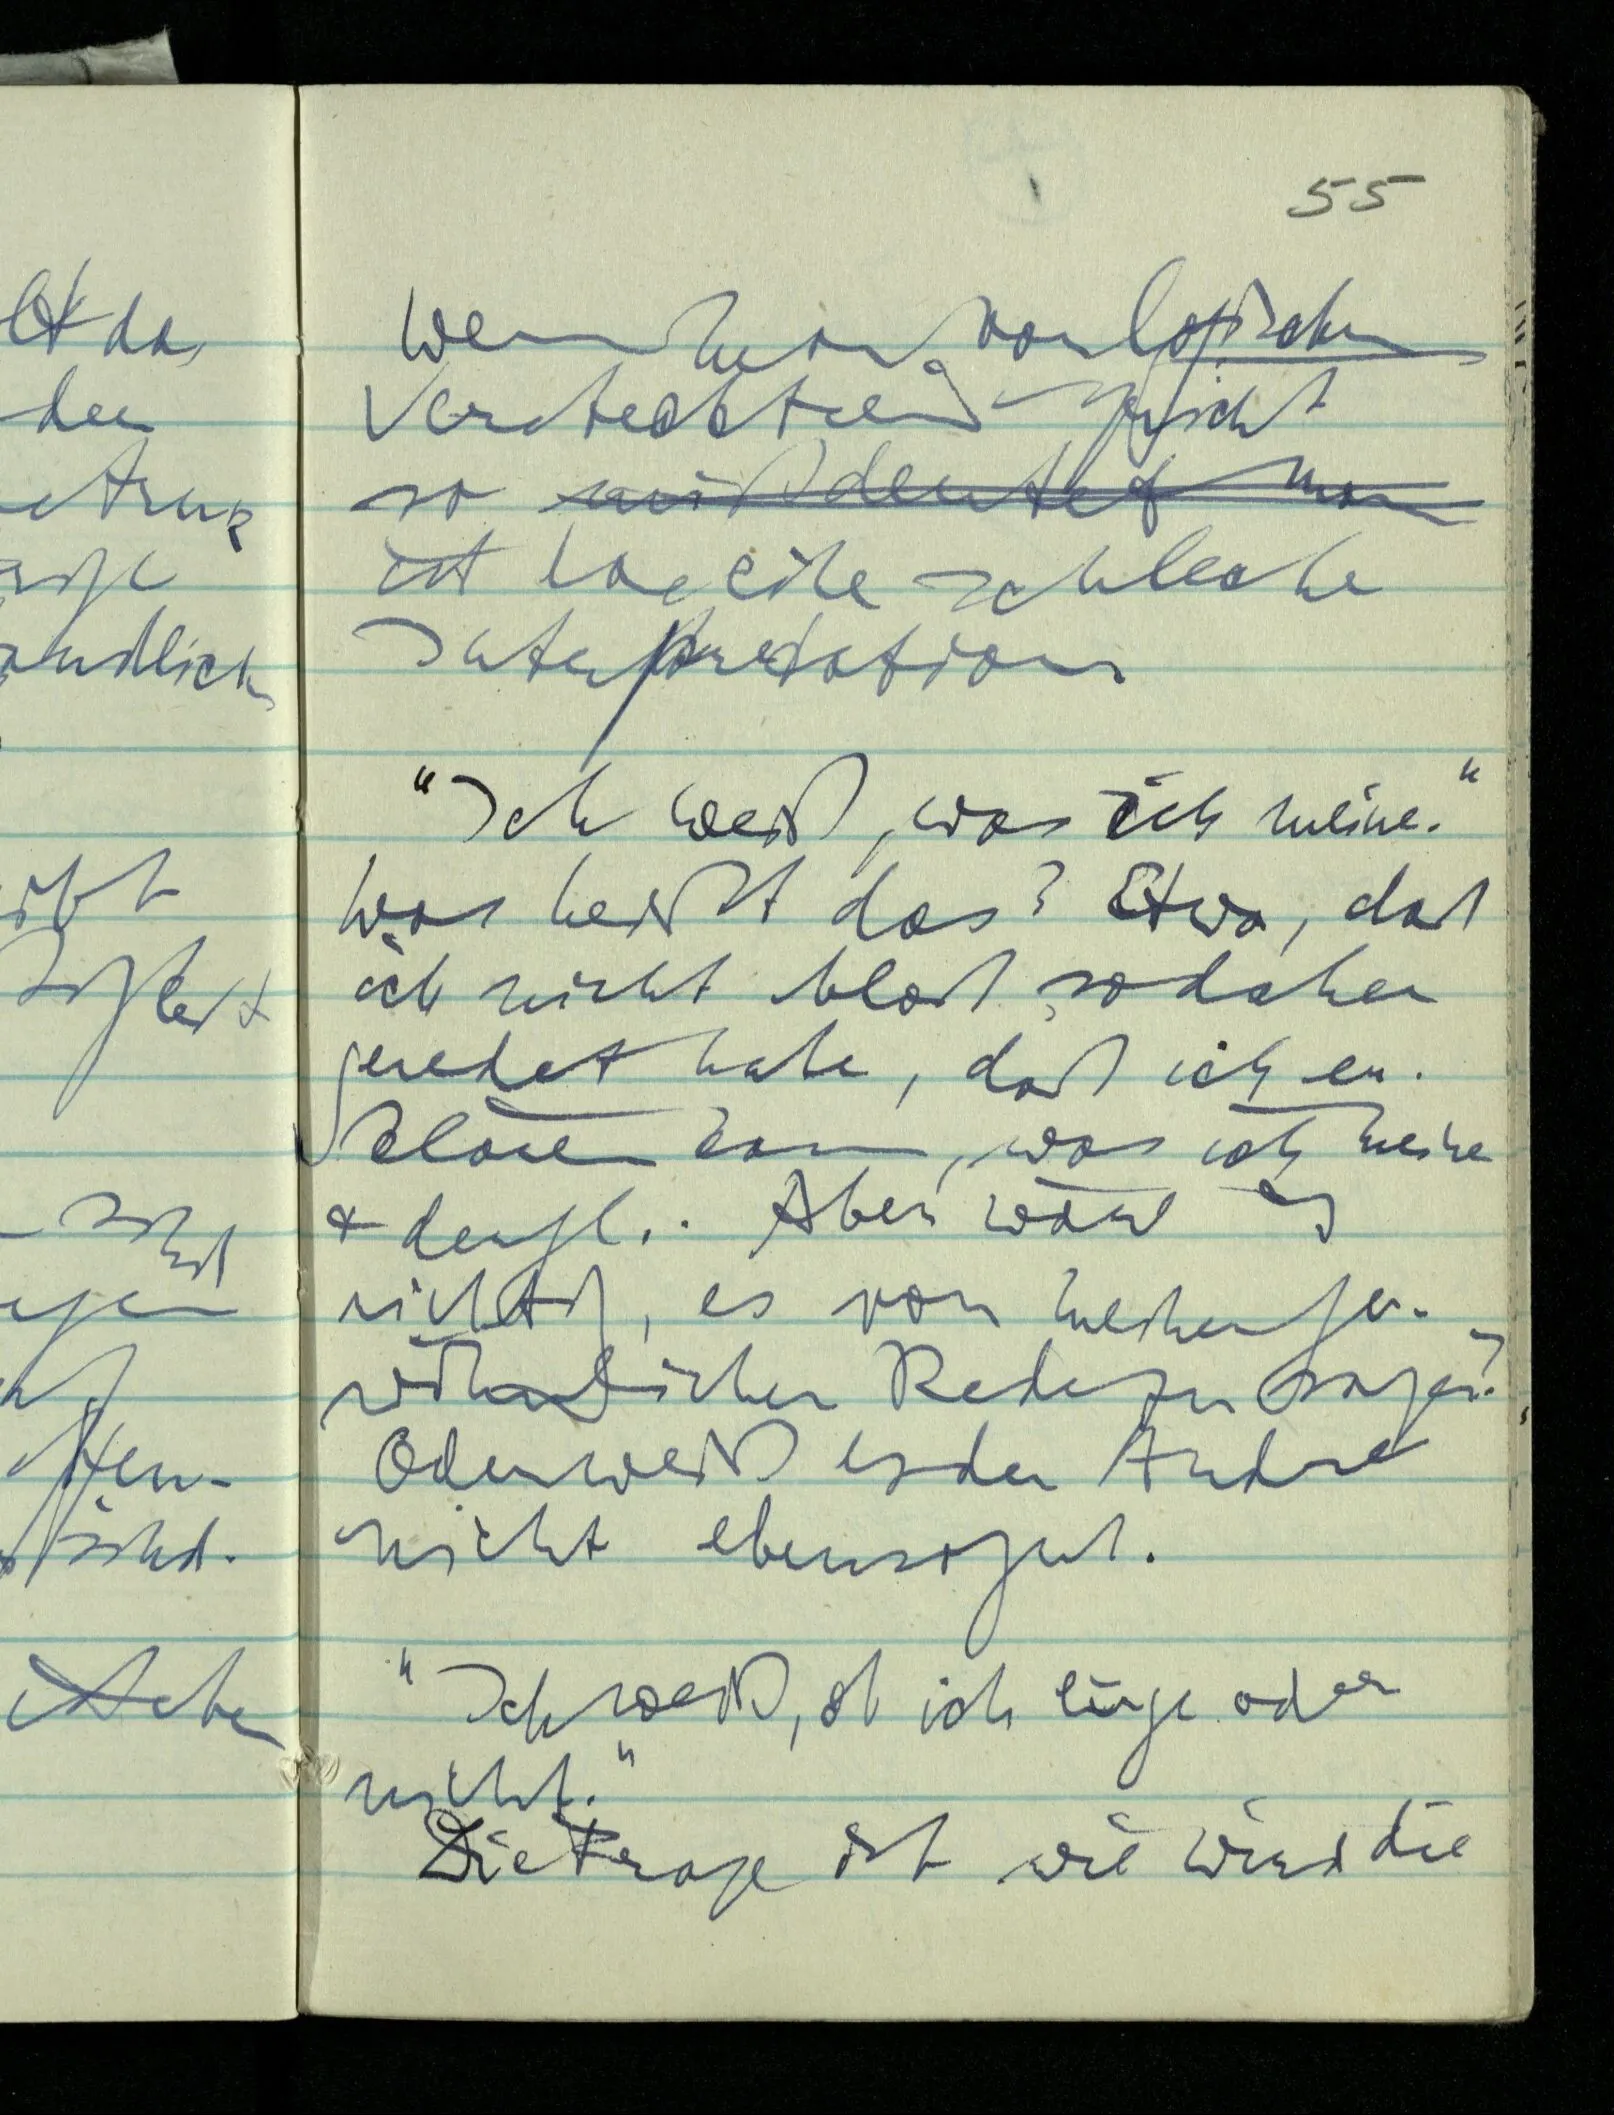 55
Wenn man von logisch
Verstecktem spricht
so mißdeutet man
ist das eine schlechte
Interpretation
"Ich weiß, was ich meine."
Was heißt das? Etwa, daß
ich nicht bloß so daher
geredet habe, daß ich er-
klären kann, was ich meine
& dergl.. Aber wäre es
richtig, es von meiner ge-
wöhnlichen Rede zu sagen?
Oder weiß es der Andre
nicht ebensogut.
"Ich weiß, ob ich lüge oder
nicht."
Die Frage ist wie wird die